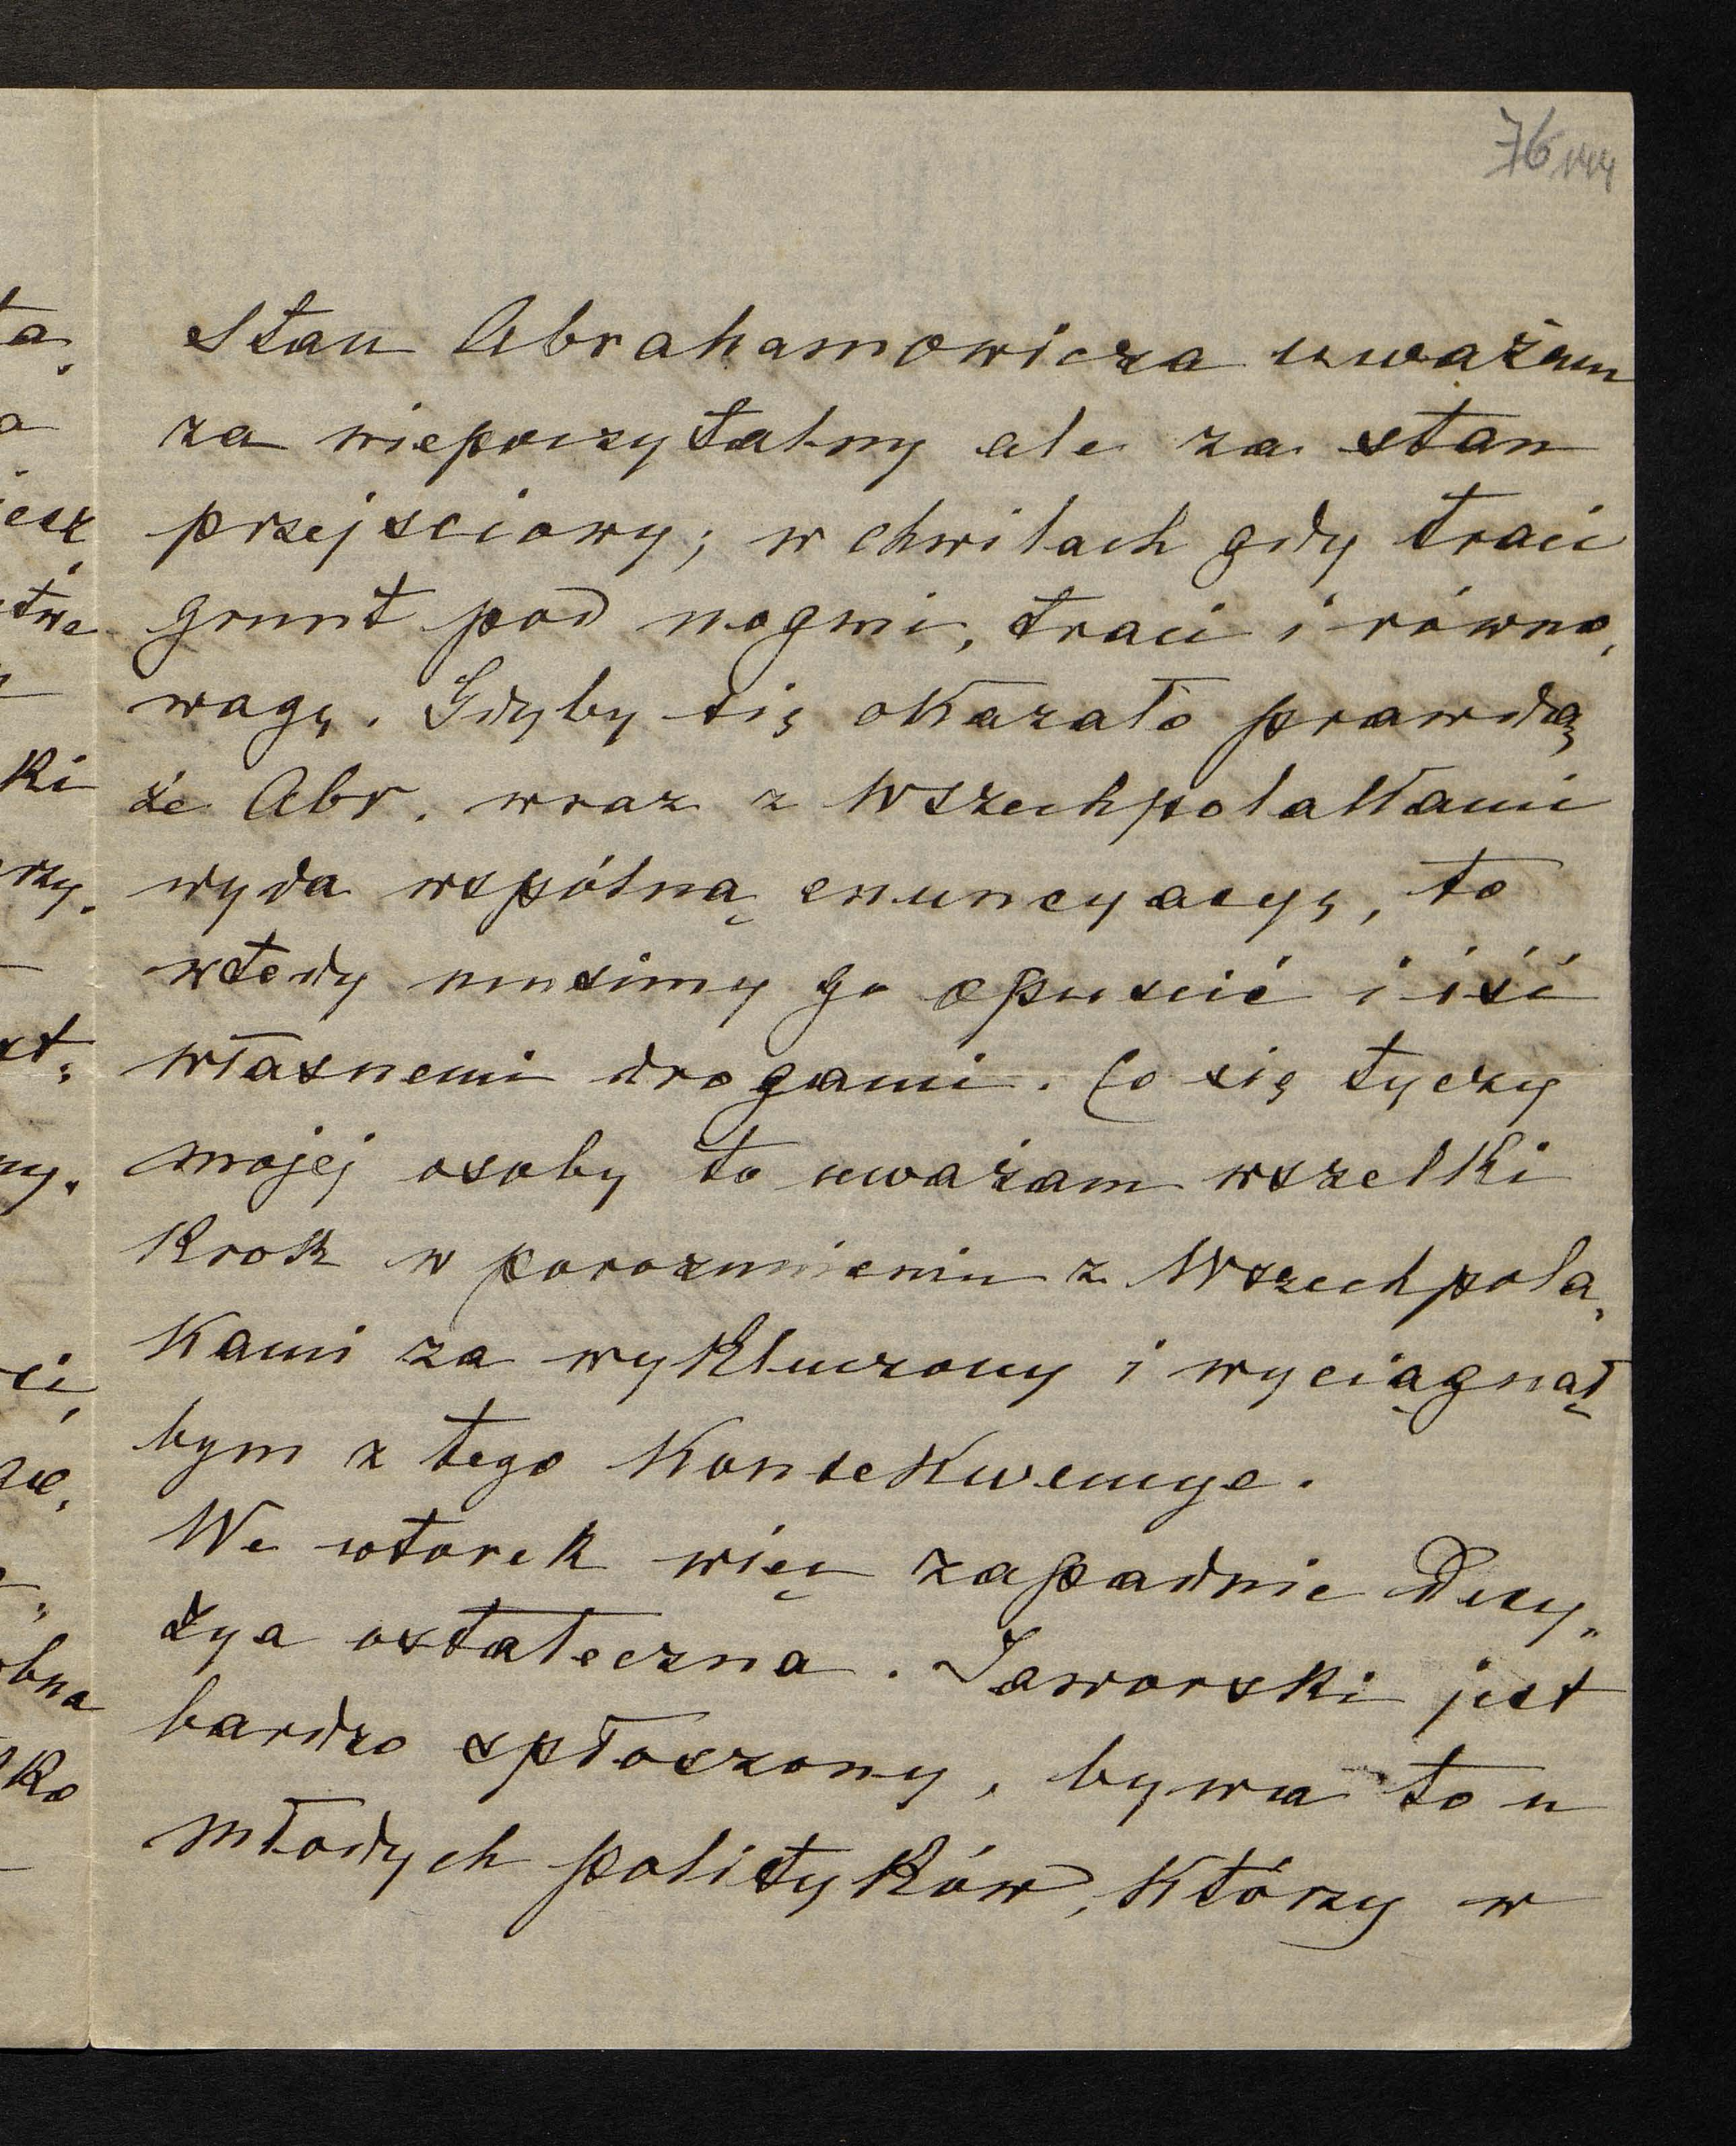 76 144
Stan Abrahamowicza uważam
za niepoczytalny ale za stan
przejsciowy; w chwilach gdy traci
grunt pod nogmi, traci i równo„
wagę. Gdyby się okazało prawdą
że Abr. wraz z Wszechpolakami
wyda wspólną enuncyacyę, to
wtedy musimy go opuscić i iść
własnemi drogami. Co się tyczy
mojej osoby to uważam wszelki
krok w porozumieniu z Wszechpola„
kami za wykluczony i wyciągnął
bym z tego konsekwencye.
We wtorek więc zapadnie Decy„
zya ostateczna. Jaworski jest
bardzo spłoszony, bywa to u
młodych polityków, którzy w